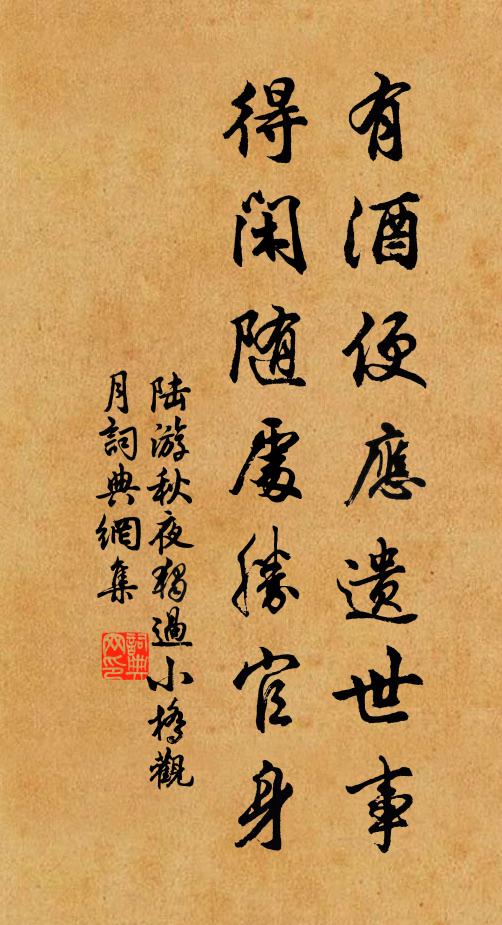 有酒便應遺世事
得閑随處勝官身
陆游秋夜獨過小橋觀
月詞典網集
詞典
网印